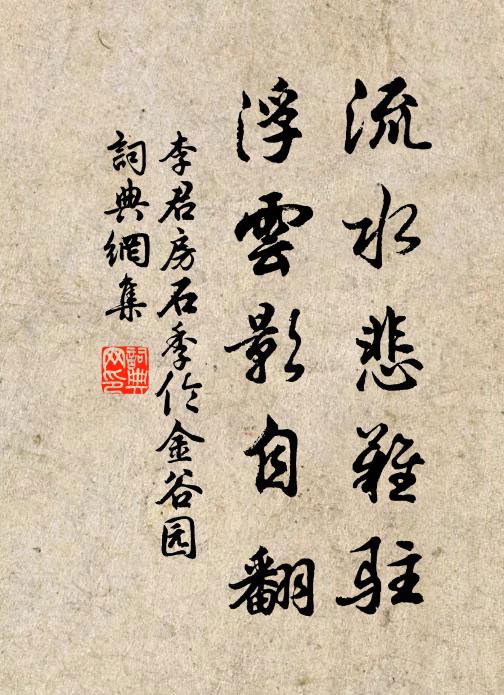 流水悲難駐
浮雲影自翻
李君房石季伦金谷园
詞典網集
詞典
网印